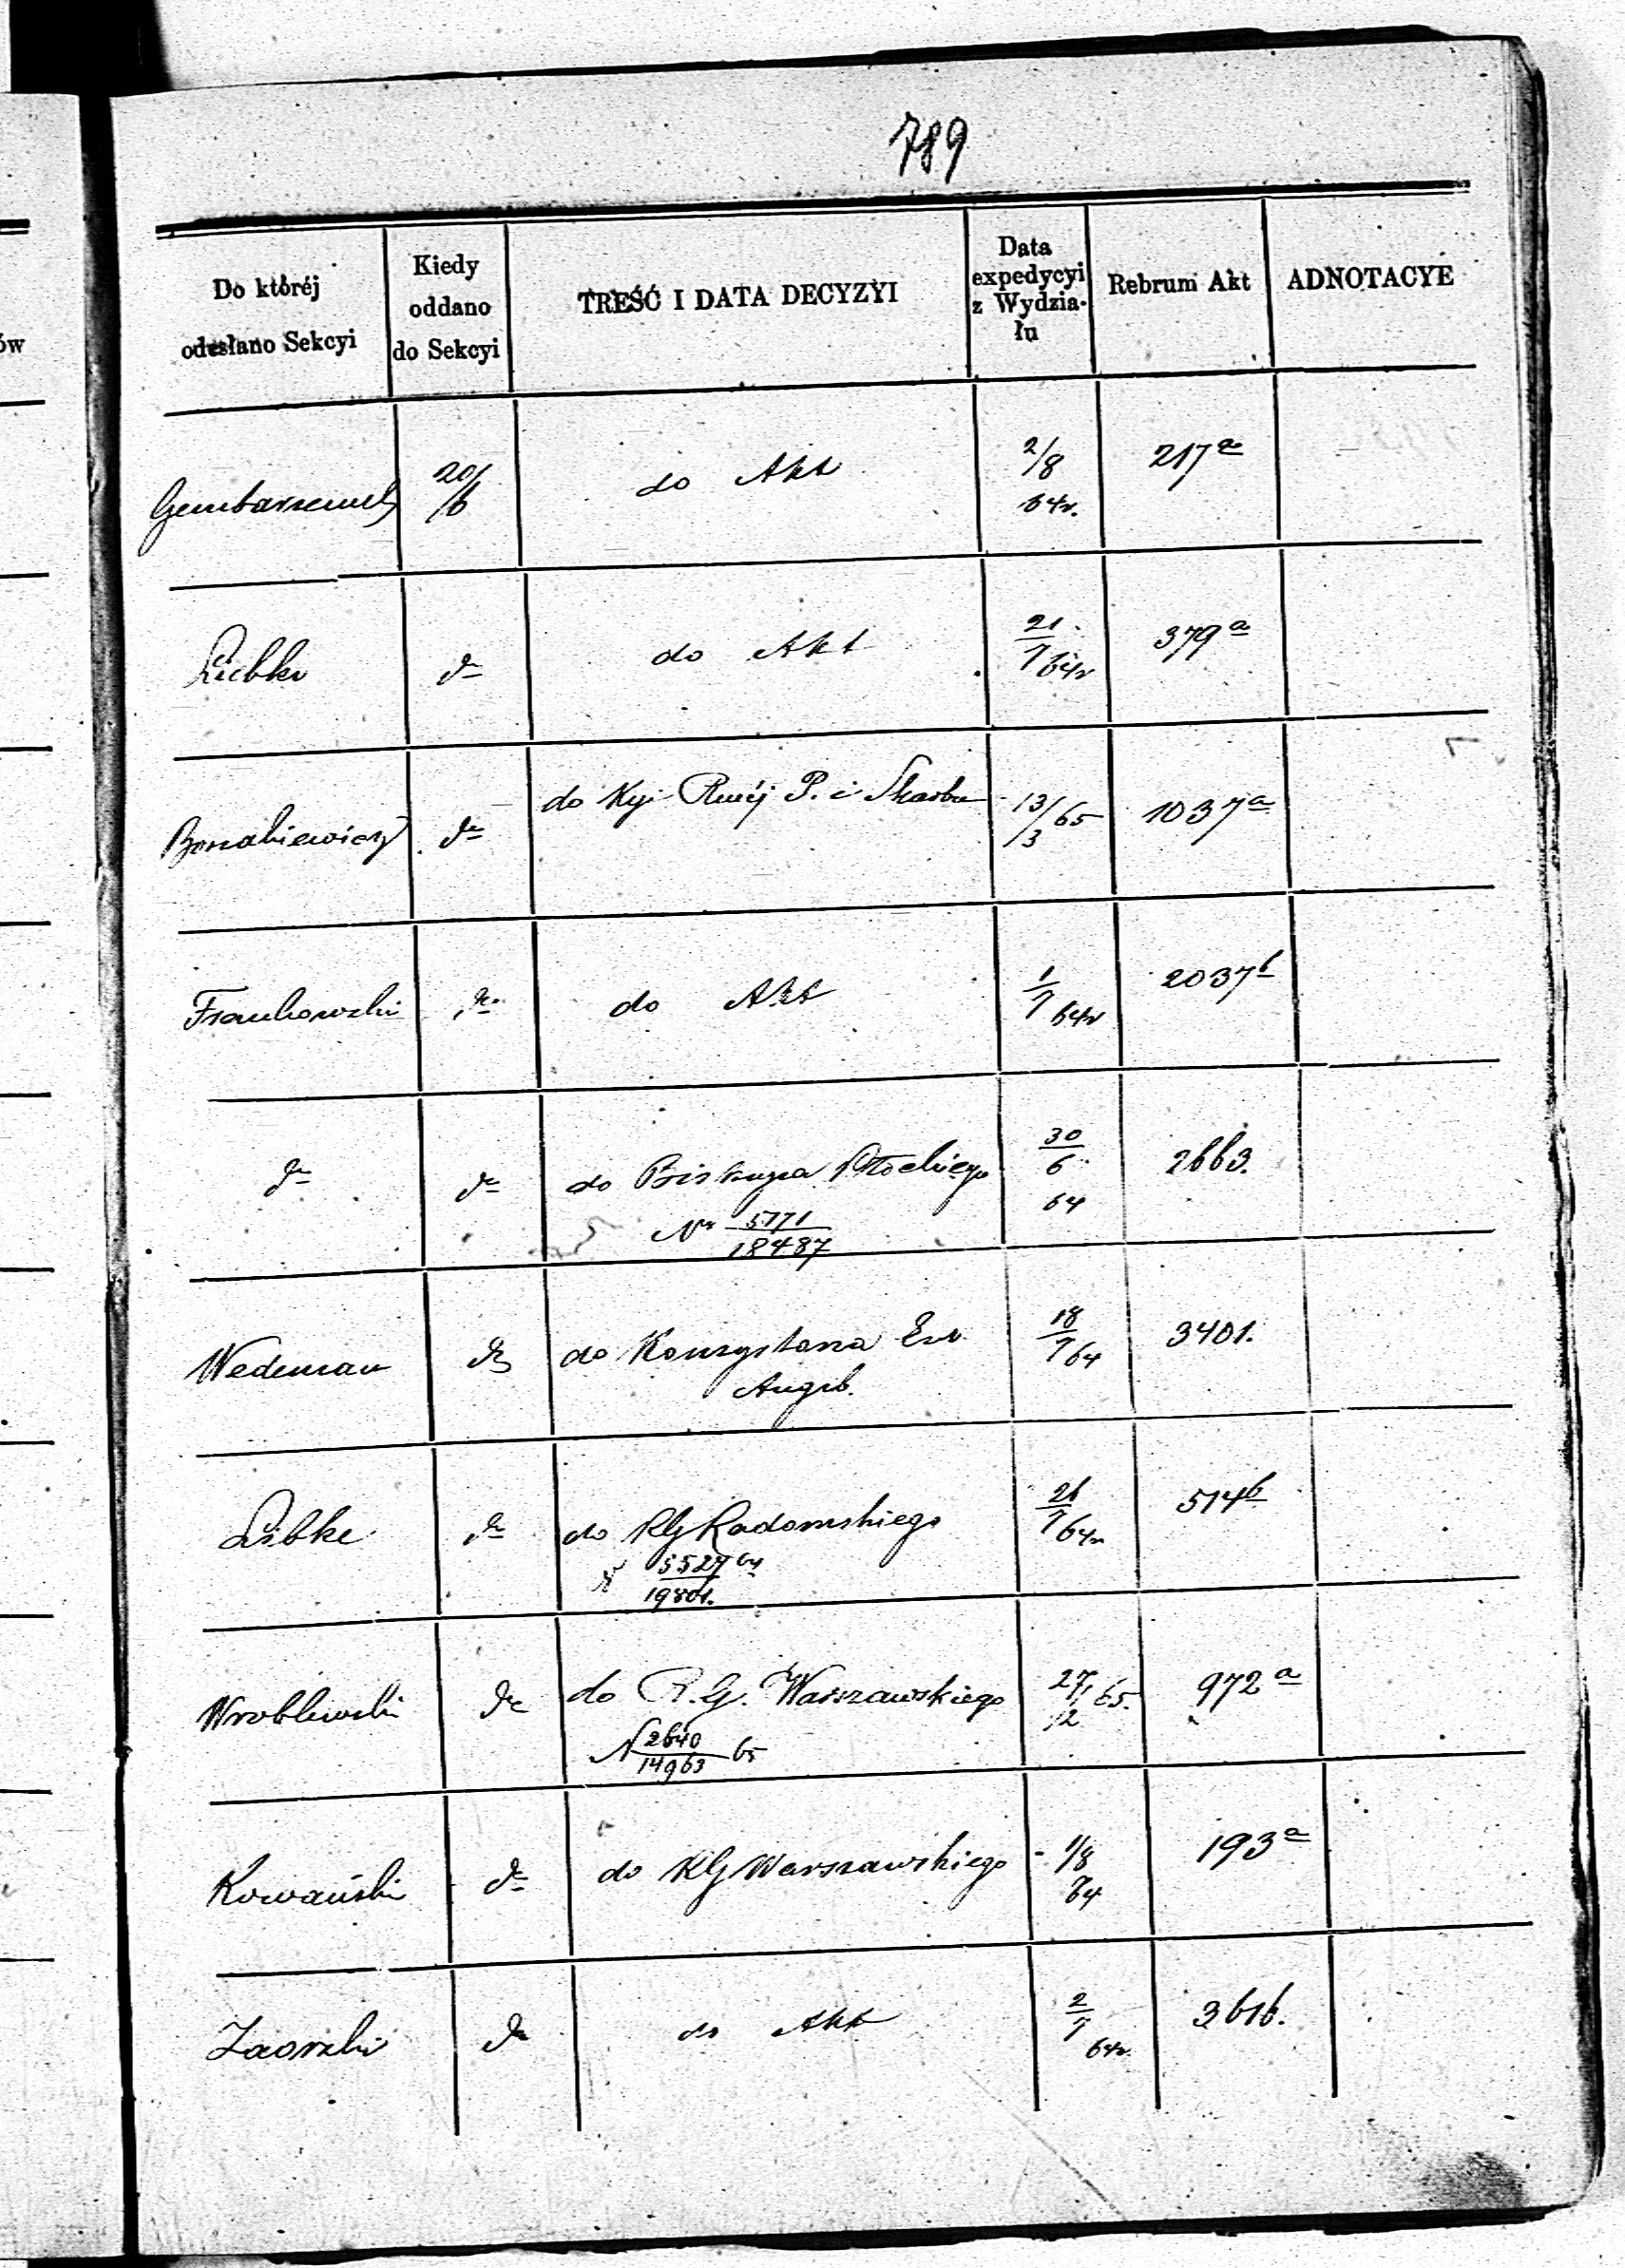 789
ów
Do któréj
odesłano Sekcyi
Kiedy
oddano
do Sekcyi
TREŚĆ I DATA DECYZYI
Data
expedycyi
z Wydzia-
łu
Rebrum Akt
ADNOTACYE
20/6
do Akt
2/8
64r.
217 a
do Akt
21
7 64r
379 a
do P. i Skarbu
13/3 65
1037 a
Frankowski
do
do Akt
1
7 64r
2037 b
do
do
do Biskupa Płockiego
Nr 5771
18487
30
6
64
2663.
Wedeman
do
do Konsystorza Ew.
Augsb.
18
7 64
3401.
Libke
do
do RG Radomskiego
N 5527 64
19801.
26
7 64r
514 b
Wroblewski
do
do R. G. Warszawskiego
N 2640
14963 65
27/2 65.
972 a
Kowański
do
do RG Warszawskiego
1/8
64
193 a
Zaorski
do
do Akt
2
7
64r.
3616.